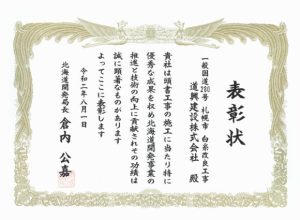 表彰状
一般国道230号 札幌市 白糸改良工事
道興建設株式会社 殿
貴社は頭書工事の施工に当たり特に
優秀な成果を収め北海道開発事業の
推進と技術の向上に貢献されその功績は
誠に顕著なものがあります
よってここに表彰します
令和二年八月一日
北海道開発局長 倉内 公嘉